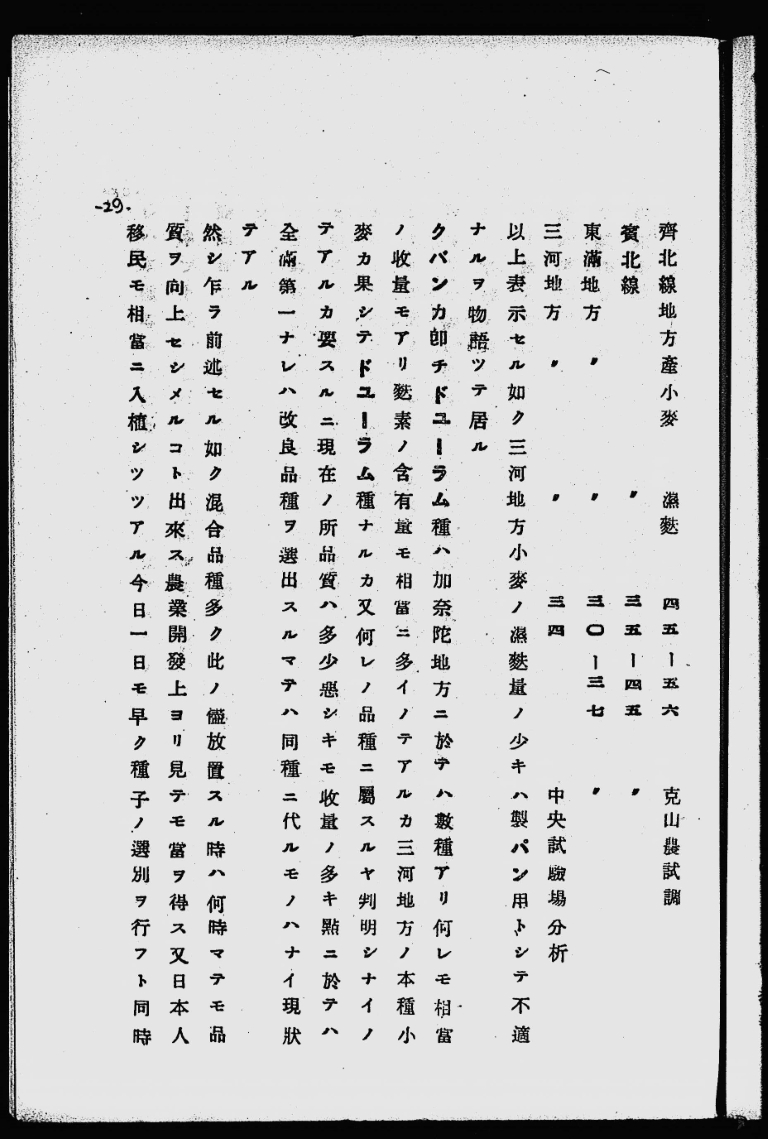 齊北線地方產小麥 濕麩 四五ー五六 克山農試調
賓北線 〃 三五ー四五 〃
東滿地方 〃 〃 三〇ー三七 〃
三河地方 〃 〃 三四 中央試驗場分析
以上表示セル如ク三河地方小麥ノ濕麩量ノ少キハ製パン用トシテ不適
ナルヲ物語ツテ居ル
クバンカ卽チドユーラム種ハ加奈陀地方ニ於テハ數種アリ何レモ相當
ノ收量モアリ麩素ノ含有量モ相當ニ多イノテアルカ三河地方ノ本種小
麥カ果シテドユーラム種ナルカ又何レノ品種ニ屬スルヤ判明シナイノ
テアルカ要スルニ現在ノ所品質ハ多少惡シキモ收量ノ多キ點ニ於テハ
全滿第一ナレハ改良品種ヲ選出スルマテハ同種ニ代ルモノハナイ現狀
テアル
然シ乍ラ前述セル如ク混合品種多ク此ノ儘放置スル時ハ何時マテモ品
質ヲ向上セシメルコト出來ス農業開發上ヨリ見テモ當ヲ得ス又日本人
移民モ相當ニ入植シツツアル今日一日モ早ク種子ノ選別ヲ行フト同時
-29.